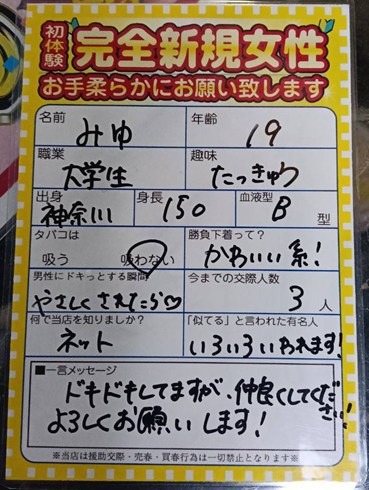 初体験 完全新規女性
お手柔らかにお願い致します
名前 みゆ 年齢 19
職業 大学生 趣味 たっきゅう
出身 神奈川 身長 150 血液型 B 型
タバコは 吸う 吸わない 勝負下着って? かわいい系!
男性にドキっとする瞬間 やさしくされたら♡ 今までの交際人数 3 人
何で当店を知りましたか? ネット 「似てる」と言われた有名人 いろいろいわれます!
■一言メッセージ
ドキドキしてますが、仲良くしてください!
よろしくお願いします!
※当店は援助交際・売春・買春行為は一切禁止となります※